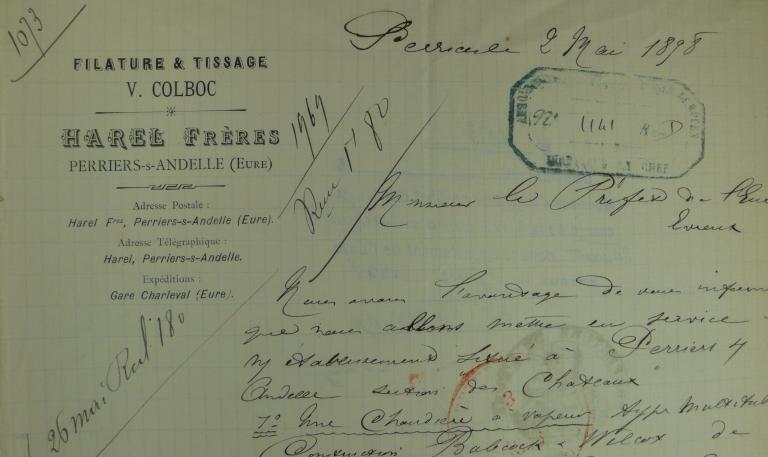 1073
FILATURE & TISSAGE
V. COLBOC
HAREL FRÈRES
PERRIERS-s-ANDELLE (EURE)
Adresse Postale :
Harel Fres, Perriers-s-Andelle (Eure).
Adresse Télégraphique :
Harel, Perriers-s-Andelle.
Expéditions :
Gare Charleval (Eure).
1969
180
26 mai 180
2 Mai 1898
1141
Monsieur le Préfet de l'Eure
Evreux
Nous avons l'avantage de vous
que nous allons mettre en service
établissement situé à Perriers
Andelle section "des Chateaux"
1º Une Chaudière à vapeur type
Construction Babcock & Wilcox de